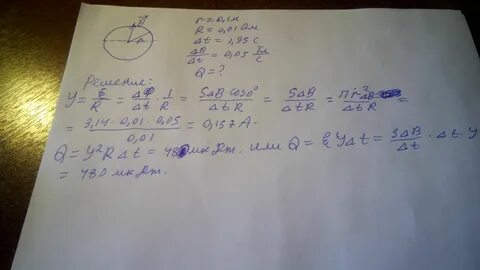 B
r
r = 0,1 м
R = 0,01 Ом
Δt = 1,95 с
ΔB/Δt = 0,05 Тл/с
Q = ?
Решение:
У = ε/R = ΔФ/Δt · 1/R = SΔB·cos0°/ΔtR = SΔB/ΔtR = Пr²ΔB/ΔtR =
= 3,14 · 0,01 · 0,05/0,01 = 0,157 А.
Q = У²RΔt = 480 мкДж. или Q = ε УΔt = SΔB/Δt · Δt · У
= 480 мкДж.